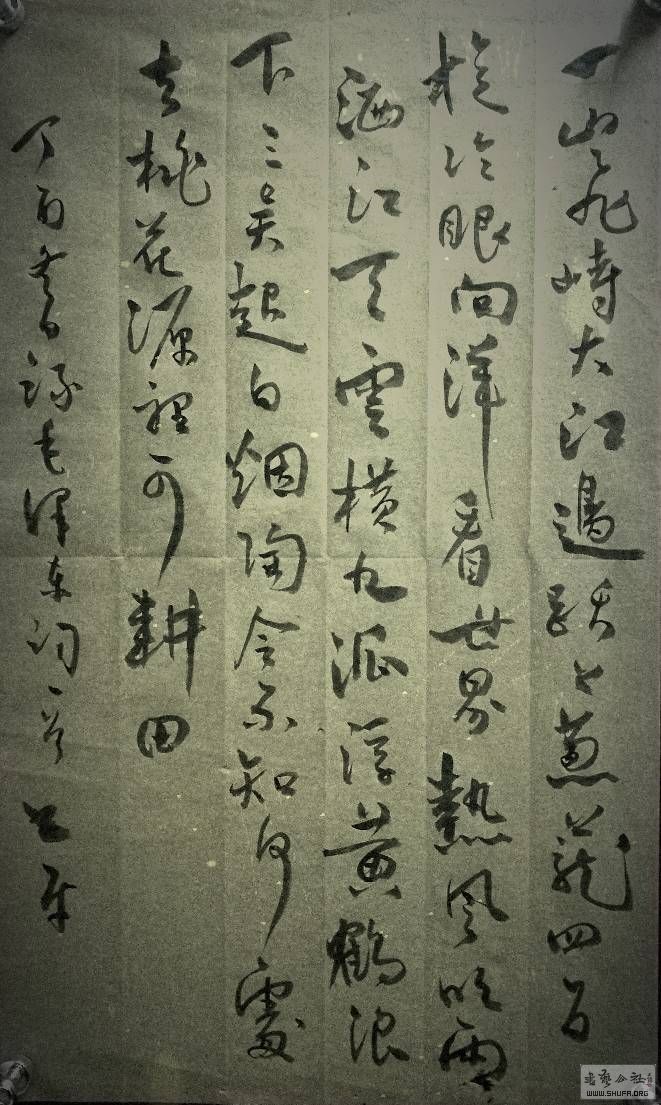 一山飛峙大江邊跃上葱蘢四百
旋冷眼向洋看世界熱風吹雨
洒江天雲橫九派浮黄鶴浪
下三吴起白烟陶令不知何處
去桃花源裡可耕田
丁酉春日録毛澤东詞一首
书艺公社
WWW.SHUFA.ORG